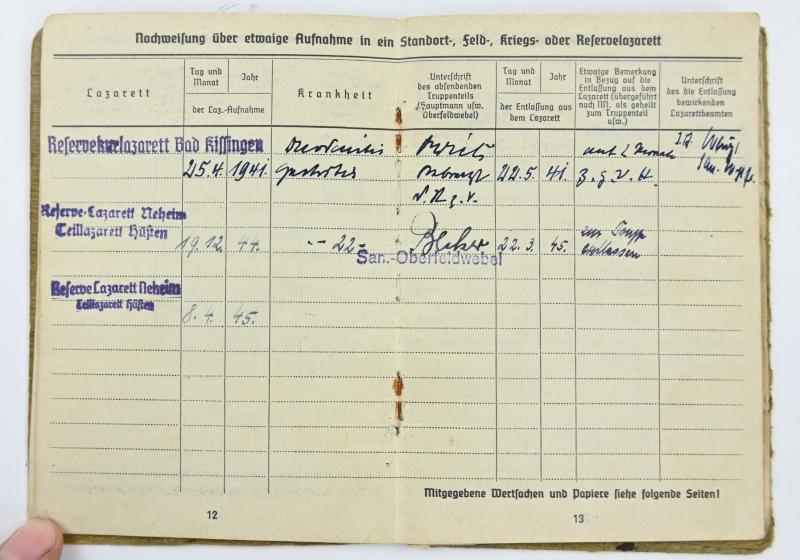 Nachweisung über etwaige Aufnahme in ein Standort-, Feld-, Kriegs- oder Reservelazarett
Lazarett
Tag und
Monat
Jahr
der Laz.-Aufnahme
Krankheit
Unterschrift
des absendenden
Truppenteils
(Hauptmann usw.
Oberfeldwebel)
Tag und
Monat
Jahr
der Entlassung aus
dem Lazarett
Etwaige Bemerkung
in Bezug auf die
Entlassung aus dem
Lazarett (übergeführt
nach NN, als geheilt
zum Truppenteil
usw.)
Unterschrift
des die Entlassung
bewirkenden
Lazarettbeamten
Reservekurlazarett Bad Kissingen
25.4. 1941. 22.5. 41. z.g.v.H.
Reserve-Lazarett Neheim
Teillazarett Hüsten
19.12. 44. -"- 22 - 22.3. 45. zur
entlassen
San.-Oberfeldwebel
Reserve Lazarett Neheim
Teillazarett Hüsten
8.4. 45.
Mitgegebene Wertsachen und Papiere siehe folgende Seiten!
12
13